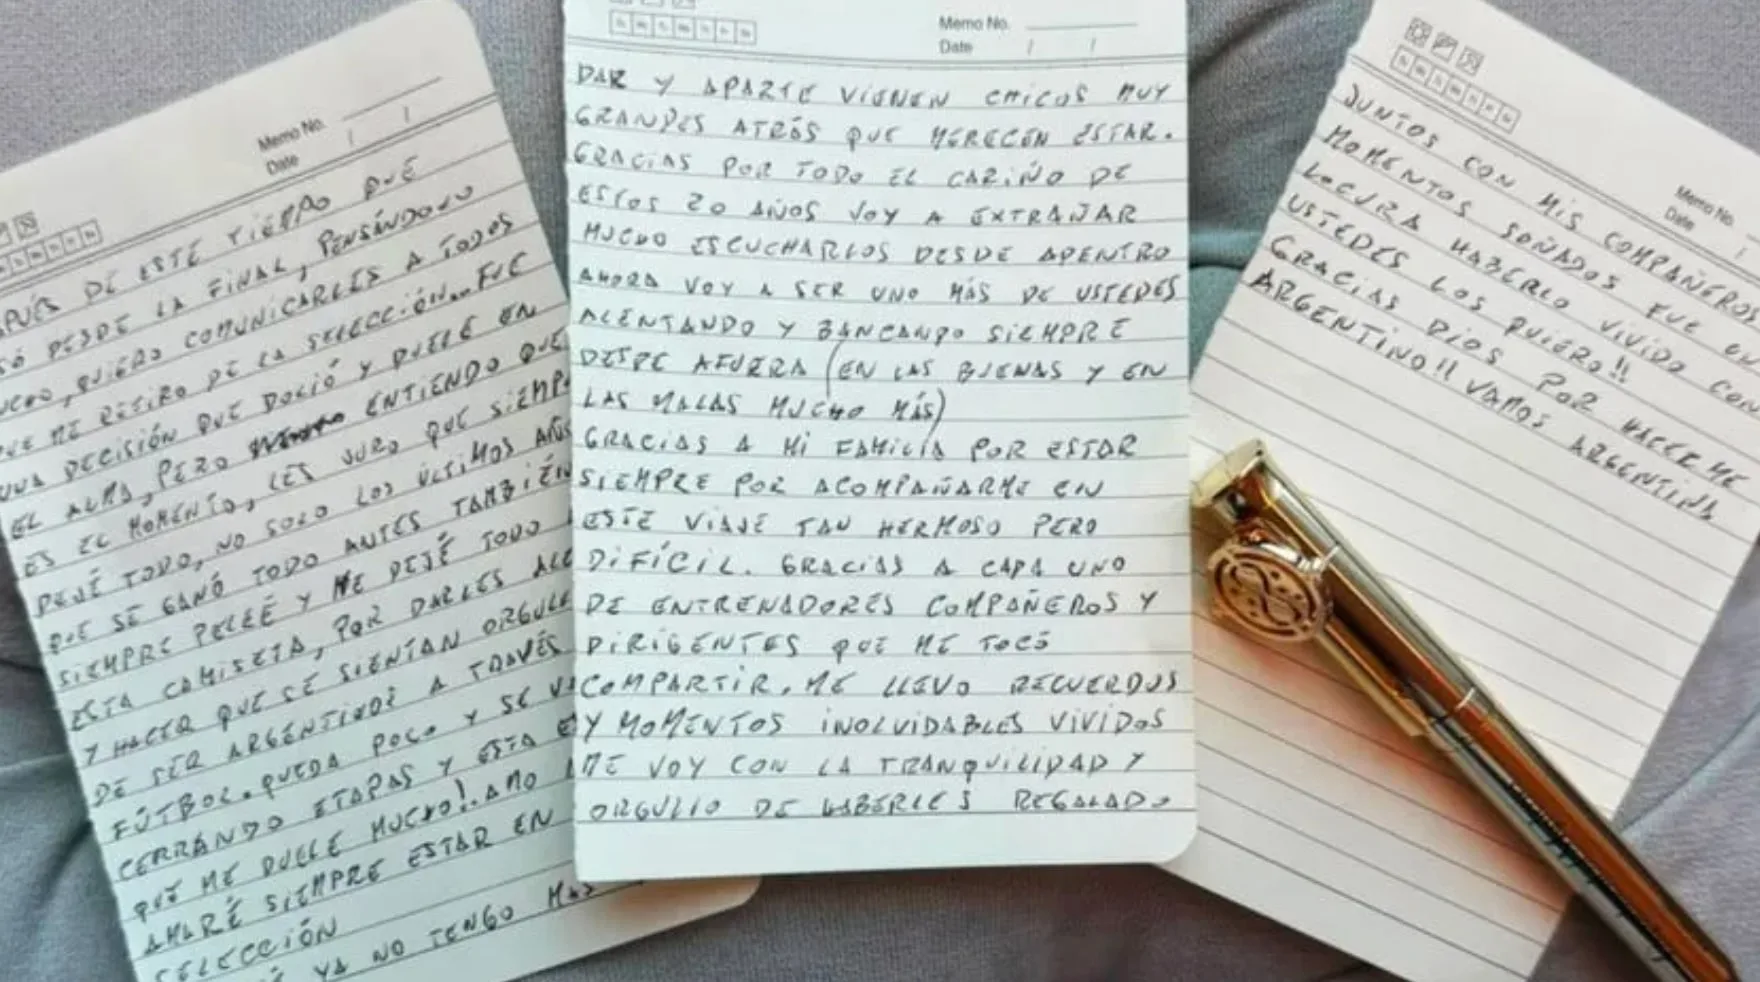 Memo No.
Date / /
DE ESTE TIEMPO QUE
DESDE LA FINAL, PENSÁNDOLO
QUIERO COMUNICARLES A TODOS
ME RETIRO DE LA SELECCIÓN... FUE
UNA DECISIÓN QUE DOLIÓ Y DUELE EN
EL ALMA, PERO ENTIENDO QUE
ES EL MOMENTO, LES JURO QUE SIEMP
DEJÉ TODO, NO SOLO LOS ÚLTIMOS AÑOS
QUE SE GANÓ TODO ANTES TAMBIÉN
SIEMPRE PELEÉ Y ME DEJÉ TODO
ESTA CAMISETA, POR DARLES ALE
Y HACER QUE SE SIENTAN ORGULL
DE SER ARGENTINOS A TRAVÉS
FÚTBOL. QUEDA POCO Y SE VA
CERRANDO ETAPAS Y ESTA E
QUE ME DUELE MUCHO! AMO
AMARÉ SIEMPRE ESTAR EN
SELECCIÓN
YA NO TENGO MAS
Memo No.
Date / /
DAR Y APARTE VIENEN CHICOS MUY
GRANDES ATRÁS QUE MERECEN ESTAR.
GRACIAS POR TODO EL CARIÑO DE
ESTOS 20 AÑOS VOY A EXTRAÑAR
MUCHO ESCUCHARLOS DESDE ADENTRO
AHORA VOY A SER UNO MÁS DE USTEDES
ALENTANDO Y BANCANDO SIEMPRE
DESDE AFUERA (EN LAS BUENAS Y EN
LAS MALAS MUCHO MÁS)
GRACIAS A MI FAMILIA POR ESTAR
SIEMPRE POR ACOMPAÑARME EN
ESTE VIAJE TAN HERMOSO PERO
DIFÍCIL. GRACIAS A CADA UNO
DE ENTRENADORES COMPAÑEROS Y
DIRIGENTES QUE ME TOCÓ
COMPARTIR. ME LLEVO RECUERDOS
Y MOMENTOS INOLVIDABLES VIVIDOS
ME VOY CON LA TRANQUILIDAD Y
ORGULLO DE HABERLES REGALADO
Memo No.
Date /
JUNTOS CON MIS COMPAÑEROS
MOMENTOS SOÑADOS FUE UNA
LOCURA HABERLO VIVIDO CON
USTEDES LOS QUIERO!!
GRACIAS DIOS POR HACERME
ARGENTINO!! VAMOS ARGENTINA